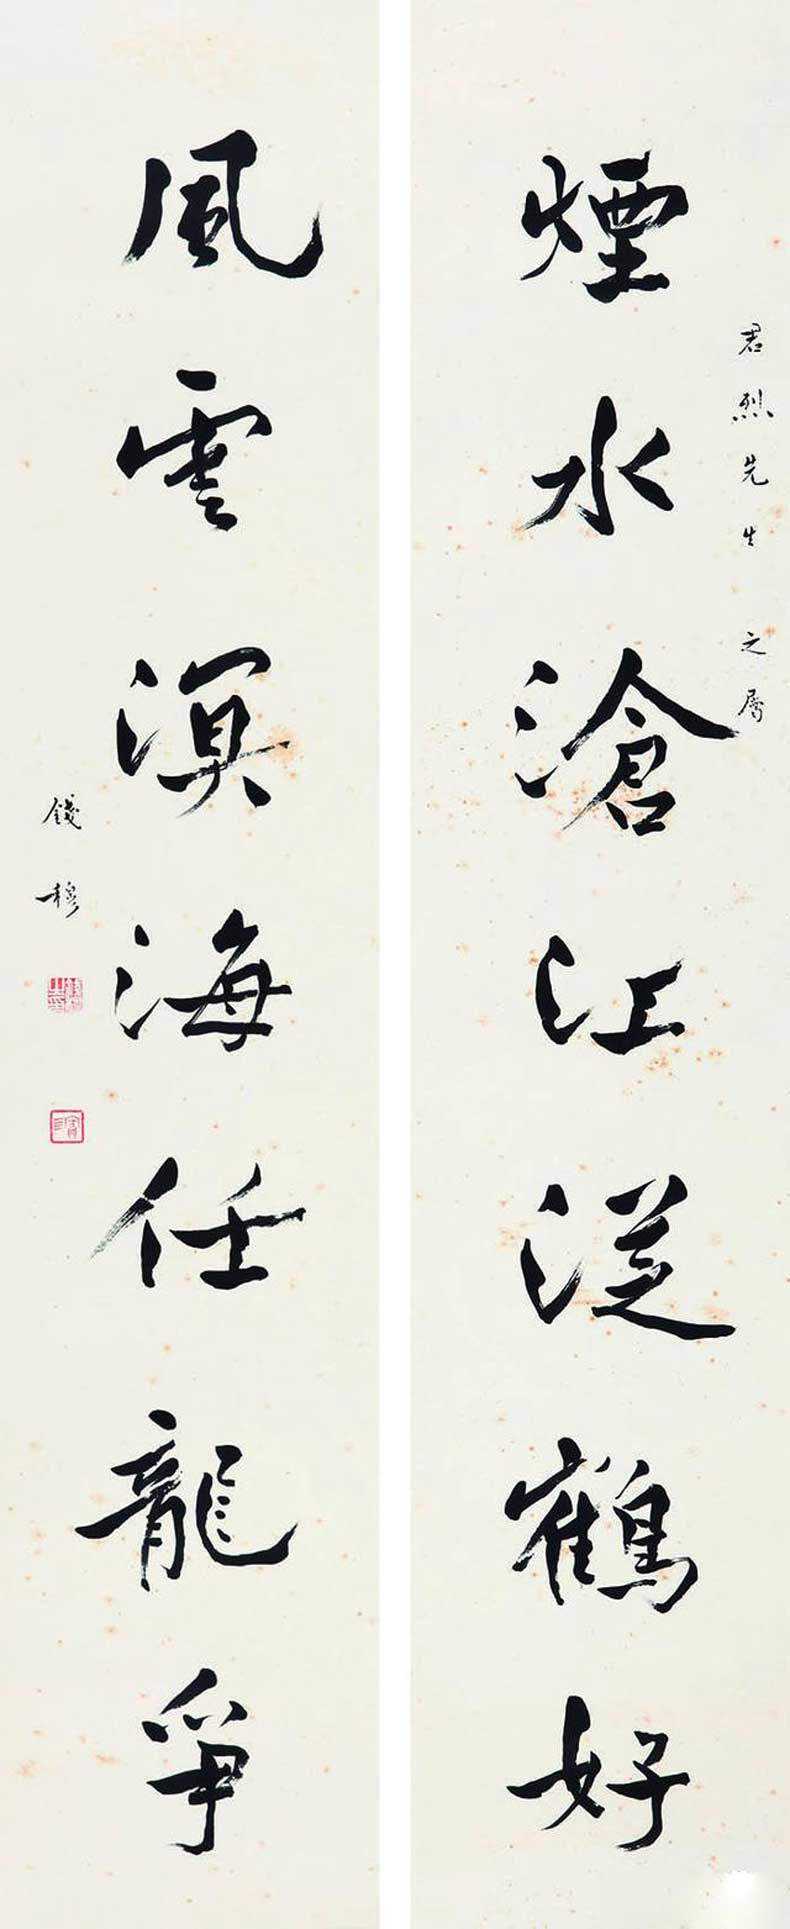 君烈先生 之屬
煙水滄江從鶴好
風雲溟海任龍爭
錢穆